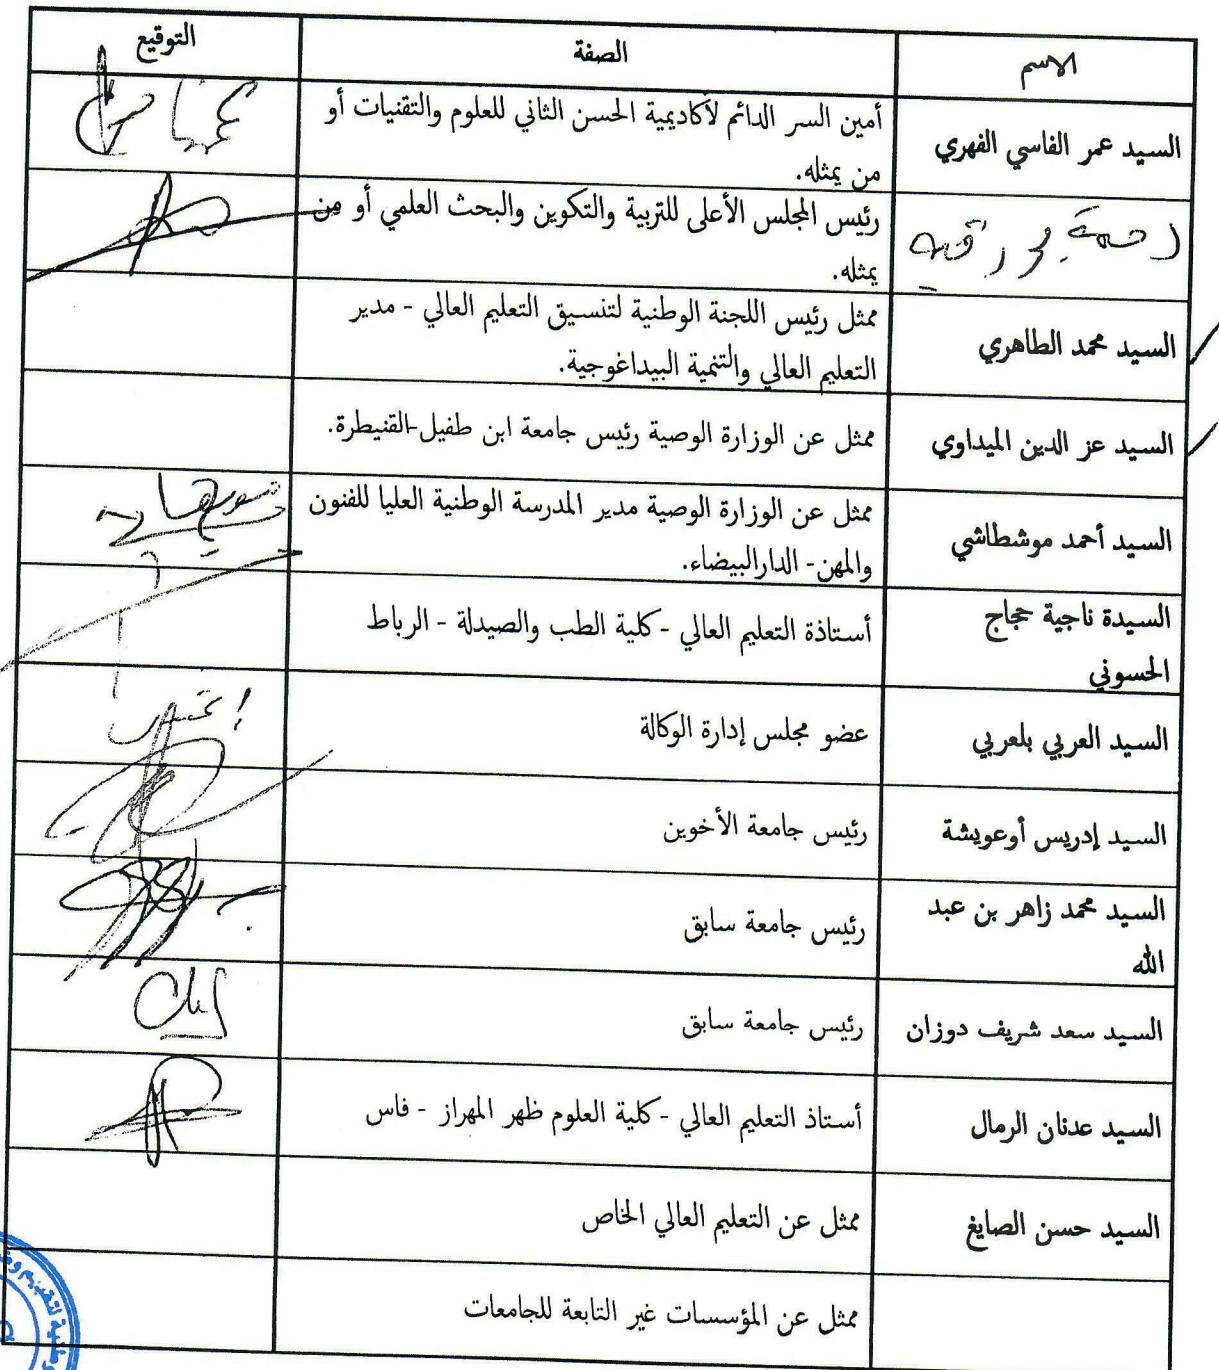 الاسم الصفة التوقيع
السيد عمر الفاسي الفهري أمين السر الدائم لأكاديمية الحسن الثاني للعلوم والتقنيات أو
من يمثله.
رئيس المجلس الأعلى للتربية والتكوين والبحث العلمي أو من
يمثله.
السيد محمد الطاهري ممثل رئيس اللجنة الوطنية لتنسيق التعليم العالي - مدير
التعليم العالي والتنمية البيداغوجية.
السيد عز الدين الميداوي ممثل عن الوزارة الوصية رئيس جامعة ابن طفيل-القنيطرة.
السيد أحمد موشطاشي ممثل عن الوزارة الوصية مدير المدرسة الوطنية العليا للفنون
والمهن- الدارالبيضاء.
السيدة ناجية حجاج أستاذة التعليم العالي -كلية الطب والصيدلة - الرباط
الحسوني
السيد العربي بلعربي عضو مجلس إدارة الوكالة
السيد إدريس أوعويشة رئيس جامعة الأخوين
السيد محمد زاهر بن عبد رئيس جامعة سابق
الله
السيد سعد شريف دوزان رئيس جامعة سابق
السيد عدنان الرمال أستاذ التعليم العالي -كلية العلوم ظهر المهراز - فاس
السيد حسن الصايغ ممثل عن التعليم العالي الخاص
ممثل عن المؤسسات غير التابعة للجامعات